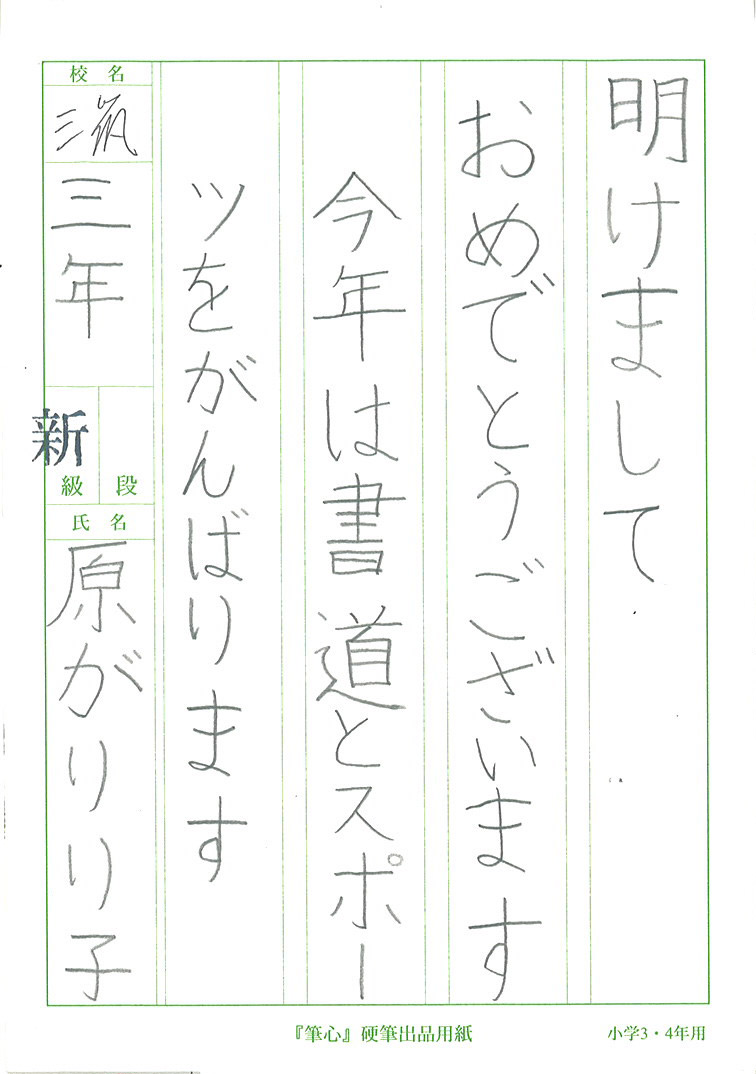 明けまして
おめでとうございます
今年は書道とスポー
ツをがんばります
校名
三年
新
級 段
氏名
原がりり子
『筆心』硬筆出品用紙
小学3・4年用